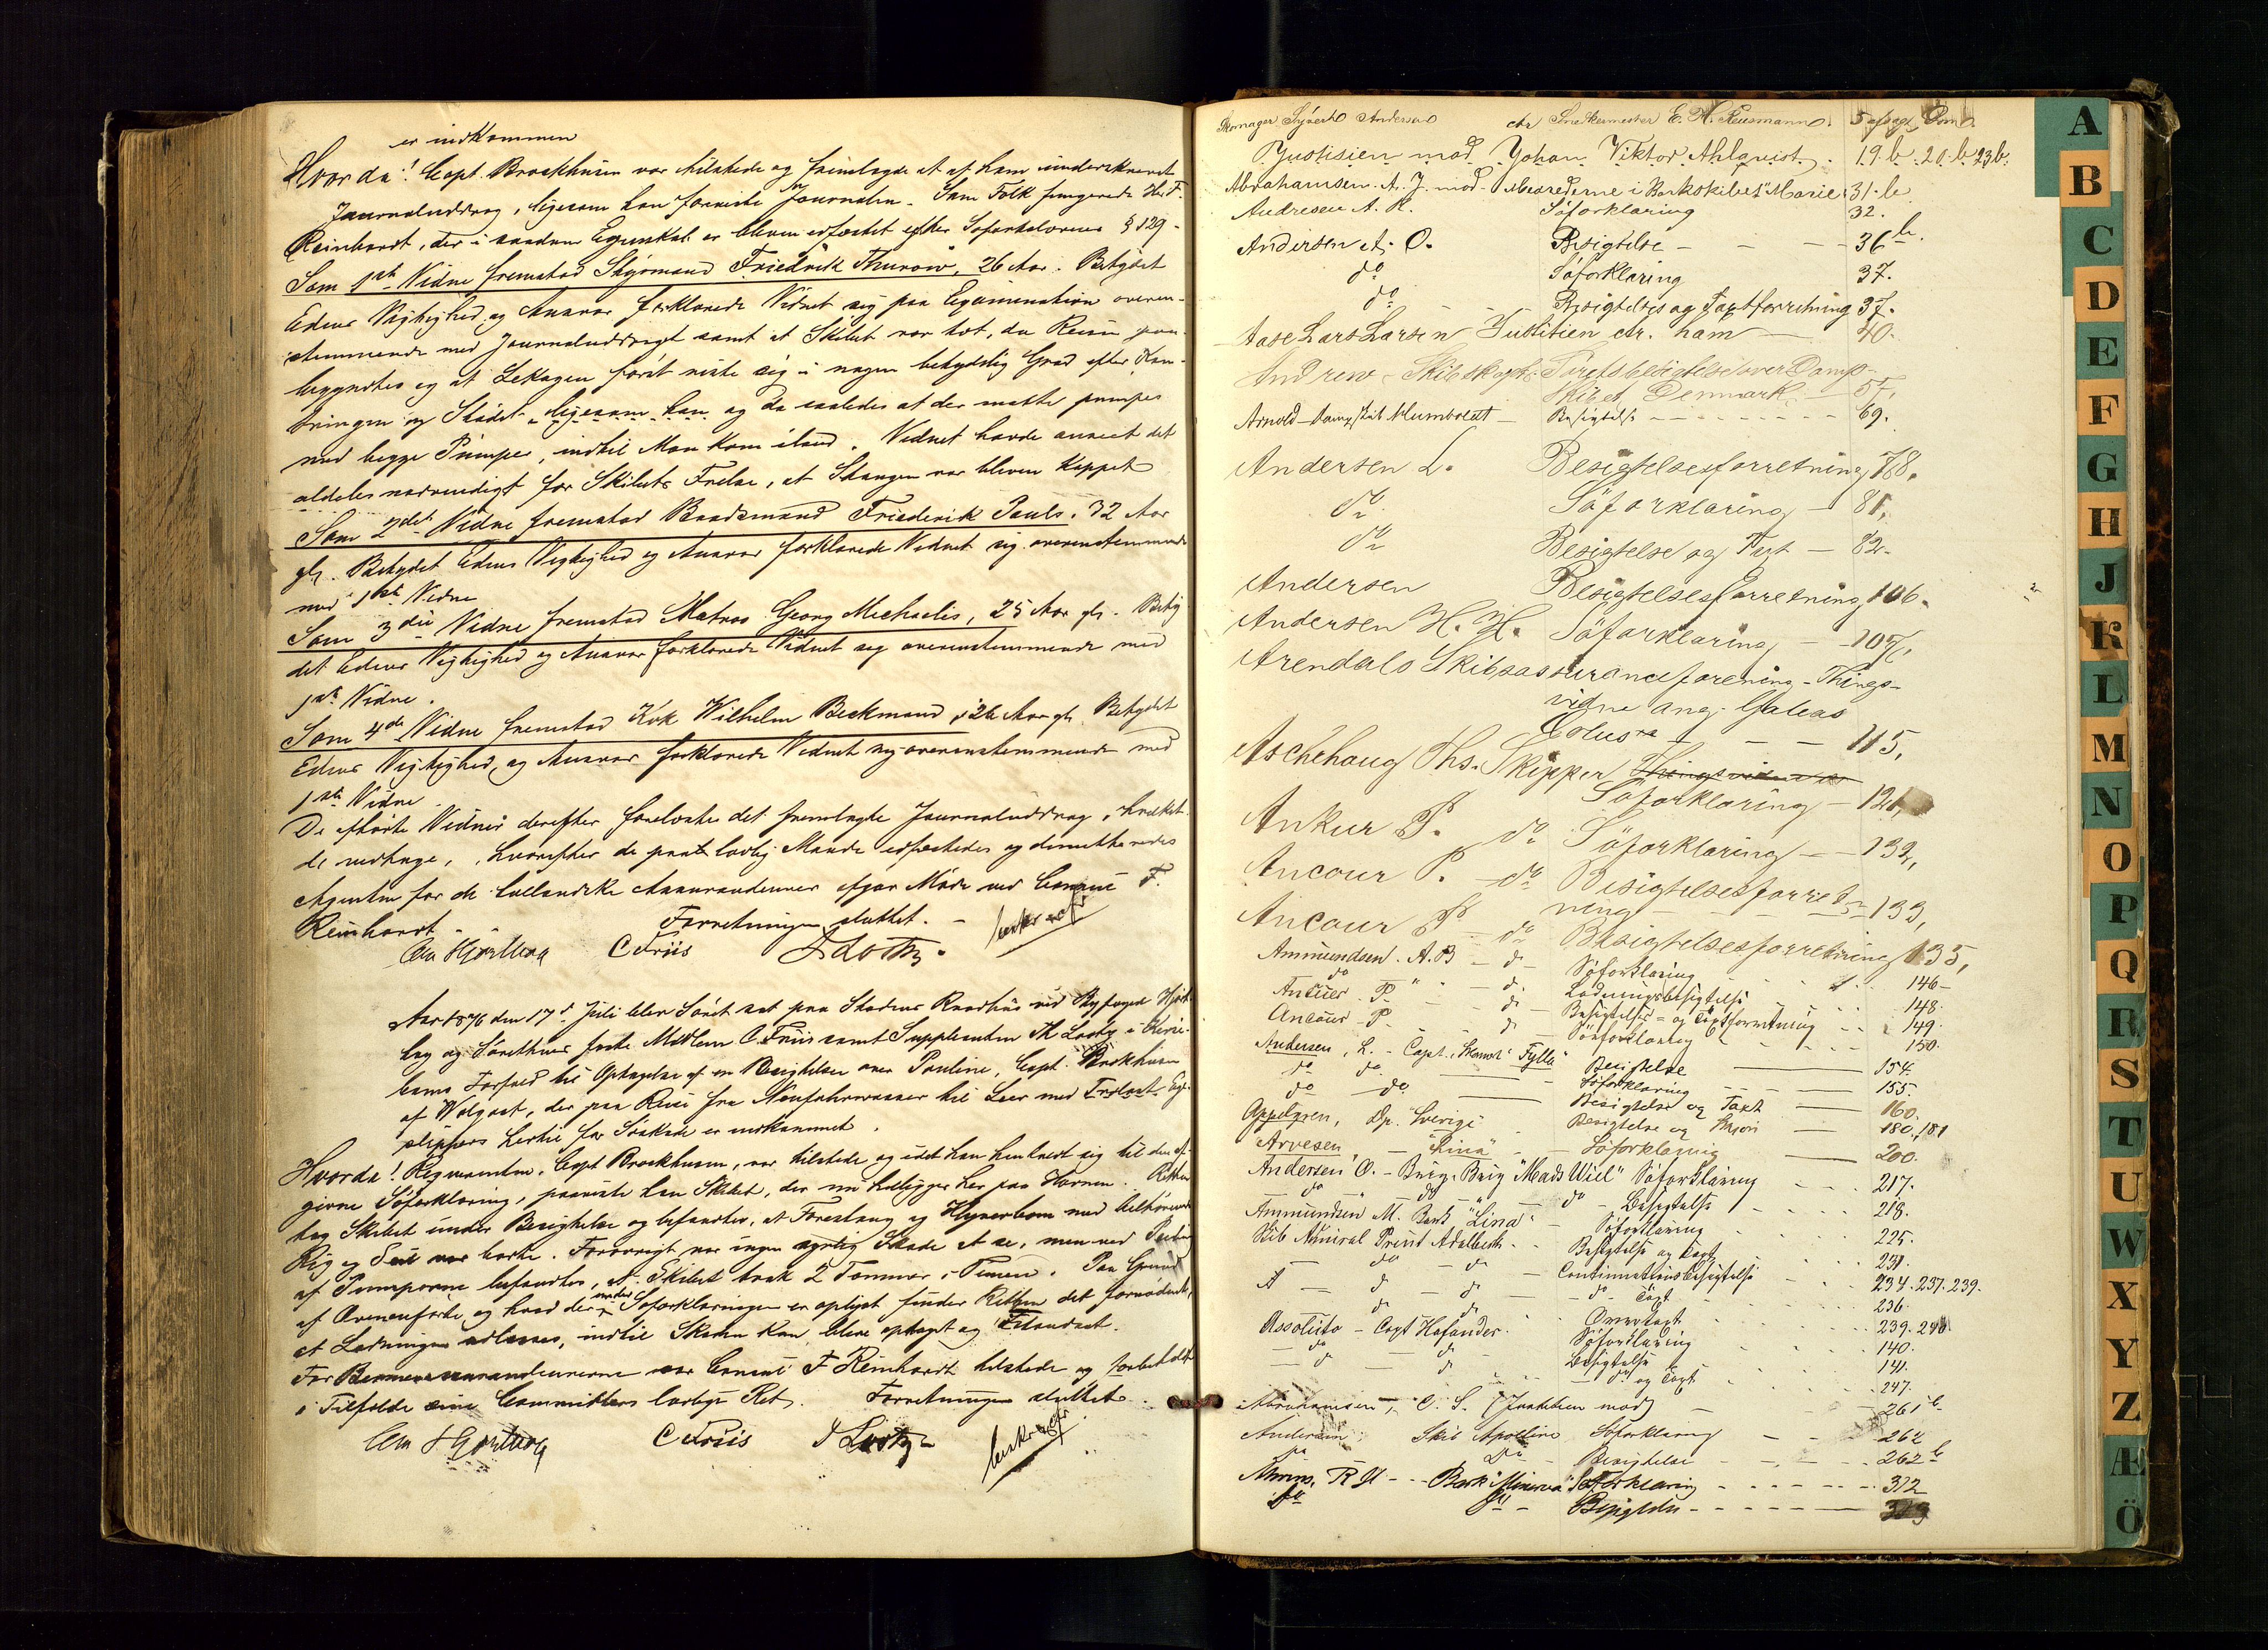 er indkommen
Hvorda! Capt. Brockhusen var tilstede og fremlagde et af ham underskrevet
Journaluddrag, ligesom han foreviste Journalen. Som Tolk fungerede Hr. F.
Reinhardt, der i saadan Egenskab er bleven edfæstet efter Søfartslovens § 129 -
Som 1ste Vidne fremstod Styrmand Friedrik Thurow, 26 Aar. Betydet
Edens Vigtighed og Ansvar forklarede Vidnet sig paa Examination overen-
stemmende med Journaluddraget samt at Skibet var tæt, da Reisen paa-
begyndtes og at Lekagen først viste sig i nogen betydelig Grad efter Kan-
tringen og Stødet - ligesom han og da saaledes at der maatte pumpes
med begge Pumper, indtil Man kom iland. Vidnet havde anseet det
aldeles nødvendigt for Skibets Frelse, at Stangen var bleven kappet
Som 2det Vidne fremstod Baadsmand Friederik Pauls. 32 Aar
gl. Betydet Edens Vigtighed og Ansvar forklarede Vidnet sig overenstemmende
med 1ste Vidne
Som 3die Vidne fremstod Matros Georg Michaelis, 25 Aar gl. Bety-
det Edens Vigtighed og Ansvar forklarede Vidnet sig overenstemmende med
1ste Vidne.
Som 4de Vidne fremstod Kok Wilhelm Beckmand, 26 Aar gl. Betydet
Edens Vigtighed og Ansvar forklarede Vidnet sig overenstemmende med
1ste Vidne.
De afhørte Vidner derefter forelæste det fremlagte Journaluddrag, hvilket
de vedtage, hvorefter de paa lovlig Maade edfæstedes og dimitteredes
Agenten for de Assurandeurer afgav Møde ved Consul F.
Reinhardt. Forretningen sluttet. -
Chr Hjortberg C Friis
Aar 1876 den 17d Juli blev Søret sat paa Stadens Raadhus ved Byfoged Hjort-
berg og Sørettens faste Medlem C. Friis samt Supplenten
Forfald til Optagelse af en Besigtelse over Pauline, Capt. Brockhusen
af Wolgast, der paa Reise fra Neufahrwasser til Leer med Trælast
hertil for Søskade er indkommet.
Hvorda! Requirenten, Capt Brockhusen, var tilstede og idet han henholdt sig til den af-
givne Søforklaring, paaviste han Skibet, der nu henligger her paa Havnen. Retten
tog Skibet under Besigtelse og befandtes, at Forestang og Klyverbom med tilhørende
Rig og Seil var borte. Forøvrigt var ingen synlig Skade at se, men ved Peiling
af Pumperne befandtes, at Skibet trak 2 Tommer i Timen. Paa Grund
af Ovenanførte og hvad der under Søforklaringen er oplyst finder Retten det fornødent,
at Ladningen udlosses, indtil Skaden kan blive optaget og istandsat.
For var Consul F Reinhardt tilstede og forbeholdt
i Tilfælde sine Committenters lovlige Ret. Forretningen sluttet.
Chr Hjortberg C Friis
Andersen ctr Snedkermester E. H. Reusmann.
Justisien mod Johan Viktor Ahlqvist. 19 b. 20. b 23 b.
Abrahamsen. A. J. mod Rhederne i Barkskibet "Marie" 31. b.
Andresen A. K. Søforklaring 32.
Andersen A. O. Besigtelse - - - 36 b.
do Søforklaring 37.
do - Besigtelses og Taxtforretning 37.
Aase Lars Larsen Justitien ctr. ham - 40.
Andrew - Skibskapt. Sørets besigtelse over Damp-
skibet Denmark - 57.
Arnold - Dampskib Humboldt - Besigtelse - - - - 69.
Andersen L. Besigtelsesforretning 78.
do Søforklaring - 81.
do Besigtelse og Taxt - 82.
Andersen Besigtelsesforretning 106.
Andersen H. H. Søforklaring - 107.
Arendals Skibsassuranceforening - Things-
vidne ang. Galeas
Eolus - - - 115.
Aschehoug Ths. Skipper
Søforklaring - 121,
Ankur P. do Søforklaring - 132,
Ancour P. - do Besigtelsesforret-
ning - 133,
Ancour P - do Besigtelsesforretning 135,
Ammundsen. A. B - do - Søforklaring 146 -
do " " - do. Ladningsbesigtelse 148.
Ancuer P. - do Besigtelses- og Taxtforretning - - 149.
Ancour P. - do Søforklaring 150.
Andersen, L. - Capt. "Fylla" Besigtelse 154.
do do Søforklaring 155.
do - do Besigtelse og Taxt 160.
Appelgren, Dp. Sverige Besigtelse og 180, 181
Arvesen - "Rina" - Søforklaring 200.
Andersen O. - Brig "Mads Wiel" Søforklaring - - 217.
do do - do - Besigtelse 218.
Ammundsen M. Bark "Lina" - Søforklaring 225.
Skib Admiral Prins Adalbert. Besigtelse og Taxt 231.
do - do - Continuationsbesigtelse 234. 237. 239.
A - do - do - Taxt 236.
do do Omvotagt 239. 240
Assolúto - Capt Hofander. Søforklaring 140.
do do Besigtelse 141.
do do - do og Taxt 247.
Abrahamsen, C. S. (Justitien mod) - 261 b.
Andersen, Skib Apolline Søforklaring - - 262
do do - Besigtelse - - - 262 b
R H - - Bark "Minerva" Søforklaring - - - - 312
do do - Besigtelse - - - - - 313
A
B
C
D
E
F
G
H
J
K
L
M
N
O
P
Q
R
S
T
U
W
X
Y
Z
Æ
Ö